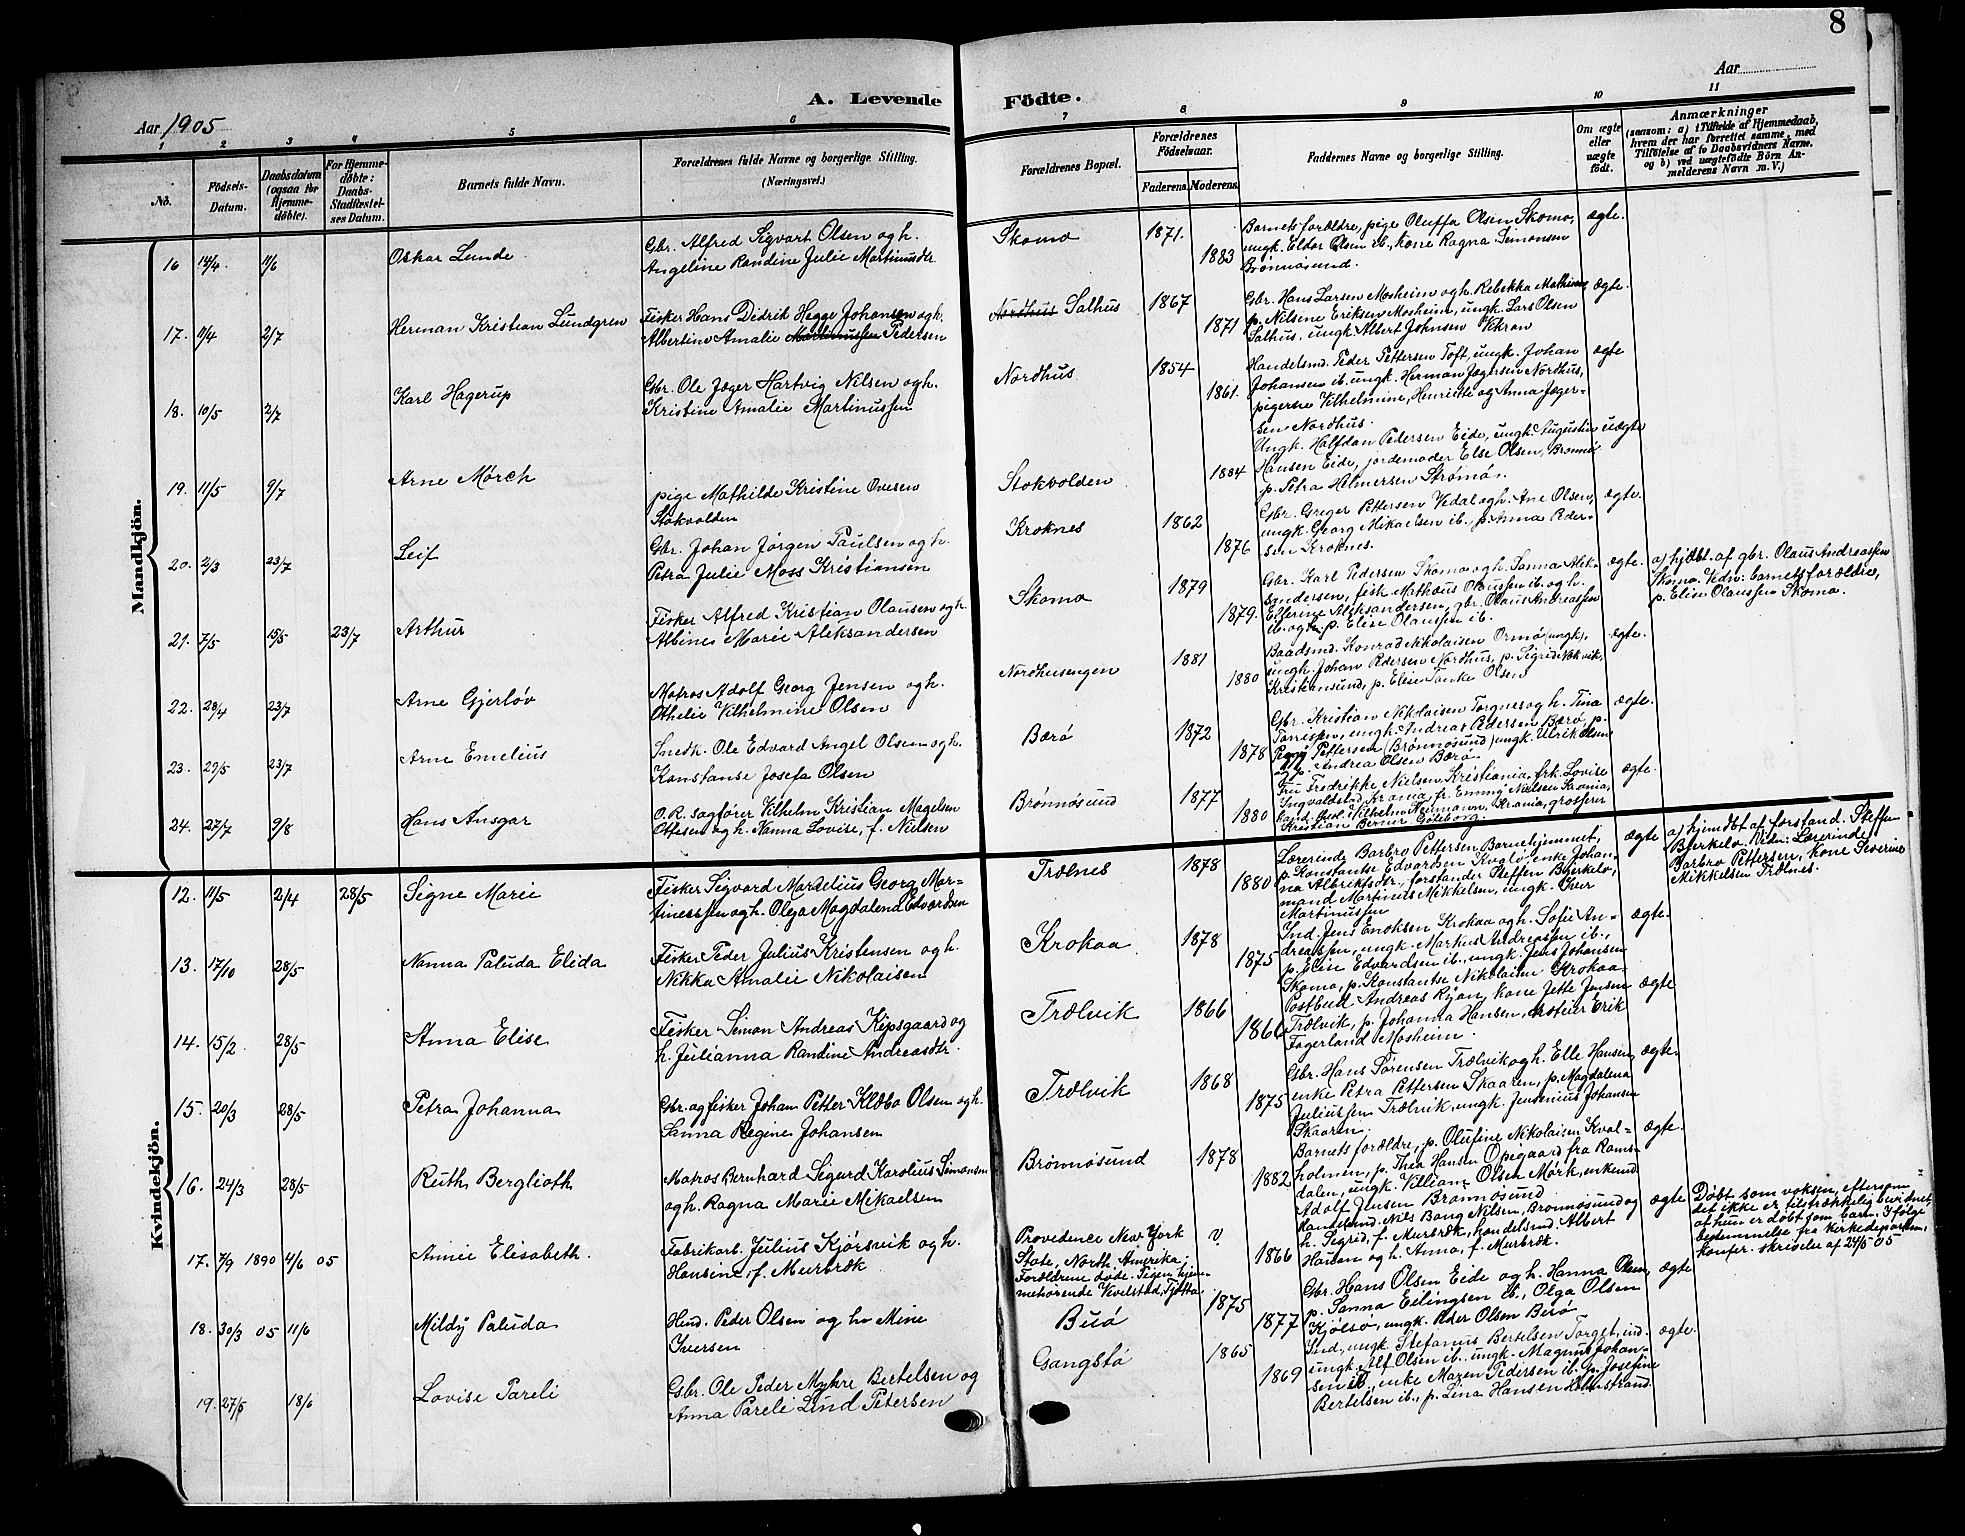 8
A. Levende Födte.
Aar 1905
Aar
1 2 3 4 5 6 7 8 9 10 11
No.
Födsels-Datum.
Daabsdatum (ogsaa for Hjemme-döbte).
For Hjemme-döbte: Daabs-Stadfæstel-ses Datum.
Barnets fulde Navn.
Forældrenes fulde Navne og borgerlige Stilling.
(Næringsvei.)
Forældrenes Bopæl.
Forældrenes Födselsaar.
Faderens. Moderens.
Faddernes Navne og borgerlige Stilling.
Om ægte eller uægte födt.
Anmærkninger
(saasom: a) i Tilfælde af Hjemmedaab,
hvem der har forrettet samme, med
Tilföielse af to Daabsvidners Navne.
og b) ved uægtefödte Börn An-
melderens Navn m. V.)
Mandkjön.
16 14/4. 11/6 Oskar Lunde
Gbr. Alfred Sigvart Olsen og h.
Angeline Randine Julie Martinusdtr
Skomo 1871. 1883
Barnets forældre, pige Oluffa Olsen Skomo,
ungk. Eldor Olsen ib., Kone Ragna Simonsen
Brønnøsund.
ægte.
17. 11/4 2/7 Herman Kristian Lundgren
Fisker Hans Didrik Hegge Johansen og h.
Albertine Amalie Martinussen Pedersen
Nordhus Salhus 1867 1871
Gbr. Hans Larsen Mosheim og h. Rebekka Mathea,
p. Nilsine Eriksen Mosheim, ungk. Lars Olsen
Salhus, ungk. Albert Johnsen Vikran
ægte.
18. 10/5 2/7 Karl Hagerup
Gbr. Ole Jæger Hartvig Nilsen og h.
Kristine Amalie Martinussen
Nordhus 1854 1861.
Handelsmd. Peder Pettersen Toft, ungk. Johan
Johansen ib. ungk. Herman Jægersen Nordhus,
pigerne Vilhelmine, Henriette og Anna Jæger-
sen Nordhus.
ægte
19. 11/5 9/7 Arne Mörch
pige Mathilde Kristine Oversen
Stokvolden
Stokvolden 1884
Ungk. Halfdan Pedersen Eide, ungk. Augustin
Hansen Eide, jordemoder Else Olsen, Brønnø
p. Petra Helmersen Strømø.
uægte
20. 2/3 23/7 Leif
Gbr. Johan Jörgen Paulsen og h.
Petra Julie Moss Kristiansen
Kroknes 1862 1876
Gbr. Greger Pettersen Vedal og h. Ane Olsen,
ungk. Georg Mikaelsen ib., p. Anna Peder-
sen Kroknes.
ægte.
21. 7/5 15/5 23/7 Arthur
Fisker Alfred Kristian Olausen og h.
Albine Marie Aleksandersen
Skomo 1879 1879.
Gbr. Karl Pedersen Skomo og h. Sanna Alek-
sandersen, fisk. Mathæus Olaussen ib. og h.
Ellerine Aleksandersen, gbr. Olaus Andreassen
ib. og h. p. Elise Olaussen ib.
ægte.
a) hjdbt. af gbr. Olaus Andreassen
Skomo. Vidn: barnets forældre,
p. Elise Olaussen Skomo.
22. 28/4 23/7 Arne Gjerlöv
Matros Adolf Georg Jensen og h.
Othelie Vilhelmine Olsen
Nordhusengen 1881 1880
Baadsmd. Konrad Nikolaisen Ormø (ungk),
ungk. Johan Pedersen Nordhus, p. Sigrid
Kristiansund, p. Elise Tanke Olsen
ægte.
23. 29/5 23/7 Arne Emelius
Snedk. Ole Edvard Angel Olsen og h.
Konstanse Josefa Olsen
Bærö 1872 1878
Gbr. Kristian Nikolaisen Torgnes og h. Tina
Tønnesen, ungk. Andreas Pedersen Bærø, p.
Pettersen (Brønnøsund) ungk. Ulrik Olsen
og p. Andrea Olsen Bærø.
ægte.
24. 27/7 9/8 Hans Ansgar
O. R. sagförer Vilhelm Kristian Magelsen
Ottesen og h. Nanna Lovise, f. Nielsen
Brønnøsund 1877 1880
Fru Fredrikke Nielsen Kristiania, frk. Lovise
Ingvaldstad Krania, fr. Emmy Nielsen Krania,
Vilhelm Neumann, Krania, grosserer
Kristian Berner Göteborg.
ægte.
Kvindekjön.
12. 11/5 2/4 28/5 Signe Marie
Fisker Sigvard Mardelius Georg Mar-
tinussen og h. Olga Magdalena Edvardsen
Trælnes 1878 1880
Lærerinde Barbro Pettersen Barnehjemmet,
p. Konstanse Edvardsen Kvalø, enke Johan-
na Albriktsdtr., forstander Steffen Bjerkelo,
mand Martinus Mikkelsen, ungk. Iver
Martinussen
ægte
a) hjemdbt af forstand. Steffen
Bjerkelo. Vidn: Lærerinde
Barbro Pettersen, kone Severine
Mikkelsen Trælnes.
13. 17/10 28/5 Nanna Paluda Elida
Fisker Peder Julius Kristensen og h.
Nikka Amalie Nikolaisen
Krokaa 1878 1875
Ind. Jens Enoksen Krokaa og h. Sofie An-
dreassen, ungk. Markus Andreassen ib.,
p. Elise Edvardsen ib., ungk. Jens Johansen
Skomo, p. Konstantse Nikolaisen Krokaa
ægte.
14. 15/2. 28/5 Anna Elise
Fisker Simon Andreas Kipsgaard og
h. Julianna Randine Andreasdtr.
Trælvik 1866 1866
Postbud Andreas Ryan, Kone Jette Jensen
Trælvik, p. Johanna Hansen, Erik
Fagerland Mosheim.
ægte
15. 20/3 28/5 Petra Johanna
Gbr. og fisker Johan Petter Klæbo Olsen og h.
Sanna Regine Johansen
Trælvik 1868 1875
Gbr. Hans Sørensen Trælvik og h. Elle Hansen,
enke Petra Pettersen Skaaren, p. Magdalena
Juliussen Trælvik, ungk. Jensenius Johansen
Skaaren.
ægte.
16. 24/3 28/5 Ruth Berglioth
Matros Bernhard Sigurd Karolius Simonsen
og h. Ragna Marie Mikaelsen
Brønnøsund 1878 1882
Barnets forældre, p. Olufine Nikolaisen Kval-
holmen, p. Thea Hansen Opegaard fra Rams-
dalen, ungk. Villiam Olsen Mørk, enkemd
Adolf Jensen Brønnøsund
ægte.
17. 7/9 1890 4/6 05 Annie Elisabeth.
Fabrikarb. Julius Kjørsvik og h.
Hansine f. Murbræk
Providence New York
State, North. Amerika;
Forældrene døde. Pigen hjem-
mehørende Vevelstad, Tjøtta.
v 1866
Handelsmd. Nils Bang Nilsen, Brønnøsund og
h. Sigrid, f. Murbræk, handelsmd. Albert
Hansen og h. Anna, f. Murbræk.
ægte
Døbt som voksen, eftersom
det ikke er tilstrækkelig bevidnet,
at hun er døbt som barn. Ifølge
bestemmelse fra kirkedepartem.
Konfer. skrivelse af 24/5 05
18. 30/3 05 11/6 Mildy Paluda
Hmd. Peder Olsen og hu Mine
Iversen
Buö 1875 1877
Gbr. Hans Olsen Eide og h. Hanna Olsen
p. Sanna Eilingsen ib., Olga Olsen
Kjølsø, ungk. Peder Olsen Buø
ægte
19. 27/5 18/6 Lovise Pareli
Gbr. Ole Peder Myhre Bertelsen og
Anna Pareli Lind Petersen
Gangstö 1865 1869
Ind., ungk. Stefanus Bertelsen Torget, ind.
ungk. Alf Olsen ib., ungk. Magnus Johan-
sen ib., enke Maren Pedersen ib. p. Josefine
Bertelsen ib., p. Lina Hansen Holmstrand.
ægte.